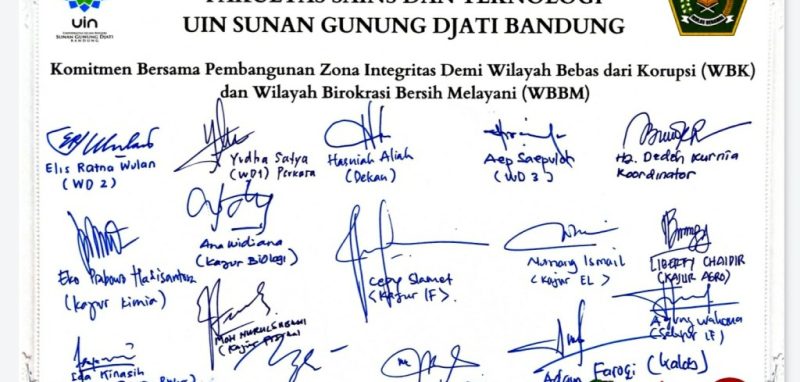 FAKULTAS SAINS DAN TEKNOLOGI
UIN SUNAN GUNUNG DJATI BANDUNG
uin
SUNAN GUNUNG DJATI
BANDUNG
Komitmen Bersama Pembangunan Zona Integritas Demi Wilayah Bebas dari Korupsi (WBK)
dan Wilayah Birokrasi Bersih Melayani (WBBM)
Elis Ratna Wulan
(WD 2)
Yudha Satya
(WD1) Perkara
Hasniah Aliah
(Dekan)
Aep Saepuloh
(WD 3)
Hj. Dedeh Kurnia
Koordinator
Eko Prabowo Hadisantoso
(Kajur Kimia)
Ana Widiana
(Kajur Biologi)
Cepy Slamet
(Kajur IF).
Nanang Ismail
(Kajur EL)
LIBERTY CHAIDIR
(KAJUR AGRO)
MOH NURUL
(Kajur
Agung Wahana
(Sekjur IF)
Ida Kinasih
Adam Faroqi (Kalab)